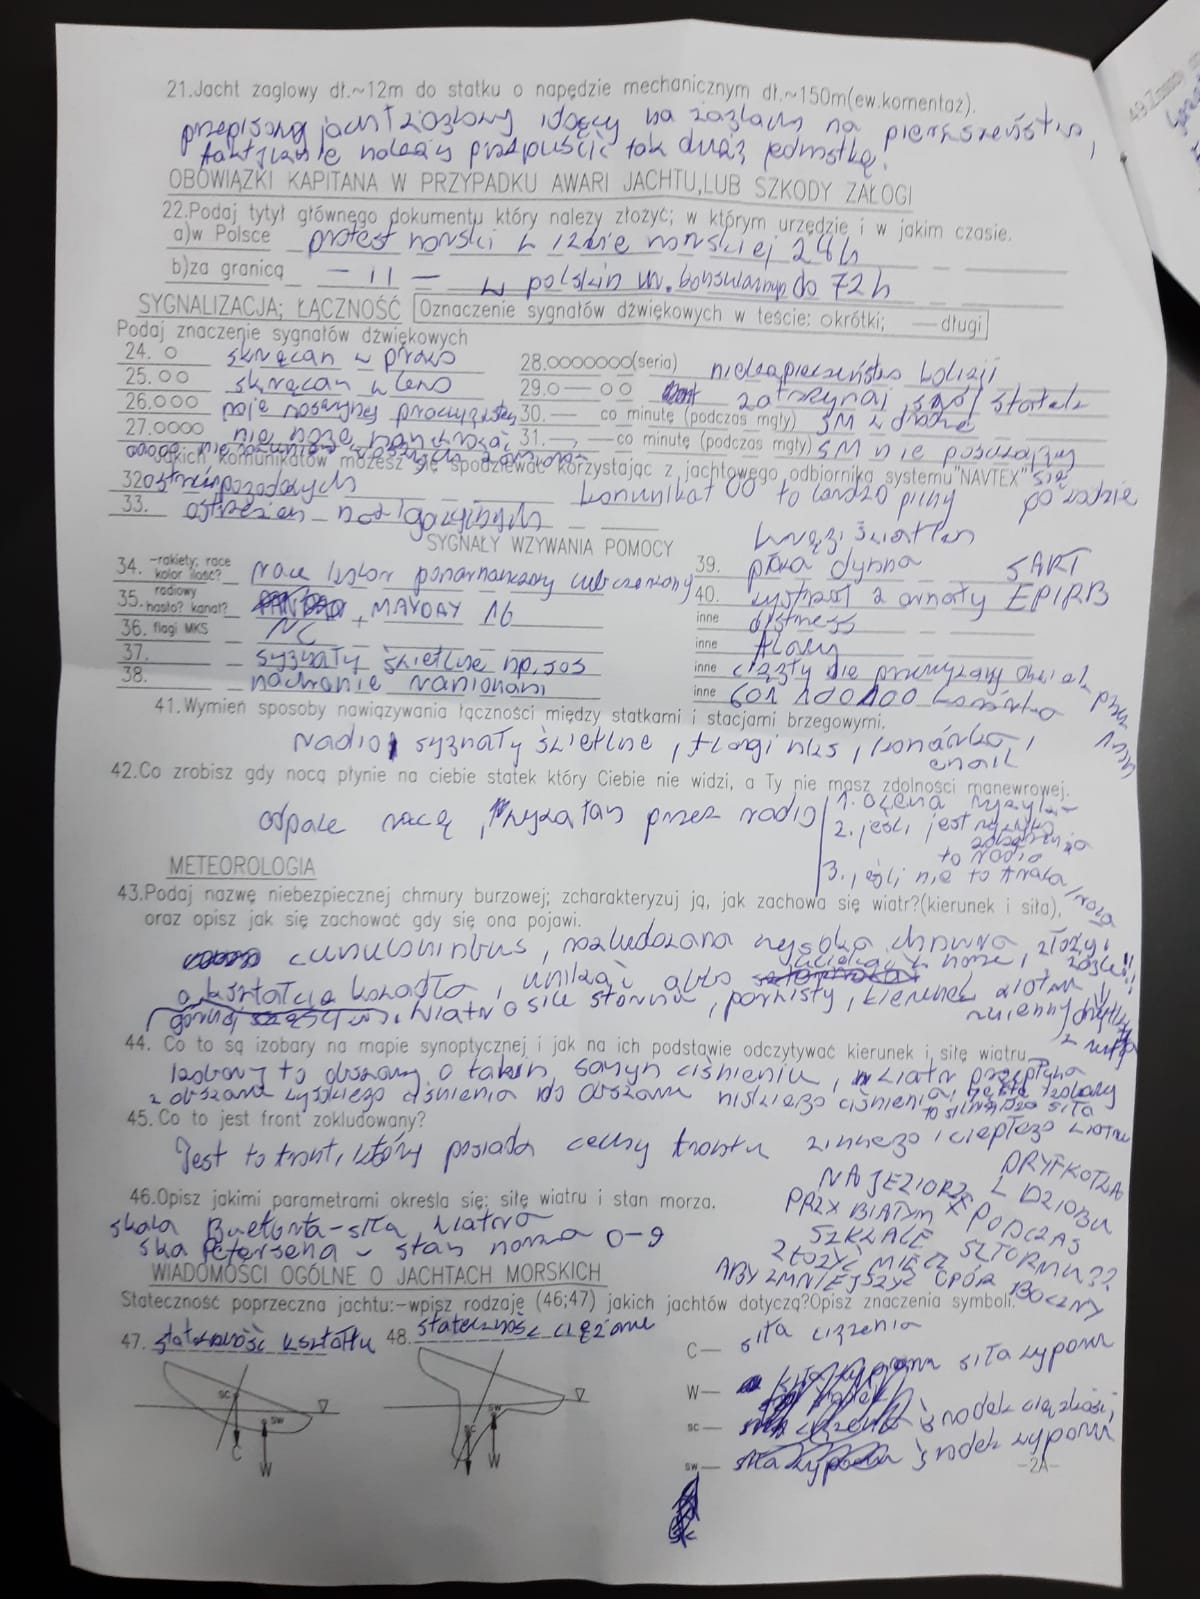 21.Jacht żaglowy dł.~12m do statku o napędzie mechanicznym dł.~150m(ew.komentaż).
przepisowy jacht żaglowy idący na żaglach na pierwszeństwo,
faktycznie należy przepuścić tak dużą jednostkę.
OBOWIĄZKI KAPITANA W PRZYPADKU AWARI JACHTU,LUB SZKODY ZAŁOGI
22.Podaj tytył głównego dokumentu który należy złożyć; w którym urzędzie i w jakim czasie.
a)w Polsce protest morski w izbie morskiej 24h
b)za granicą — 11 — w polskim urz. konsularnym do 72h
SYGNALIZACJA; ŁĄCZNOŚĆ Oznaczenie sygnałów dźwiękowych w teście: okrótki; —długi
Podaj znaczenie sygnałów dźwiękowych
24. o skręcam w prawo 28.ooooooo(seria) niebezpieczeństwo kolizji
25.oo skręcam w lewo 29.o—oo zatrzymaj swój statek
26.ooo moje maszyny pracują wstecz 30.— co minutę (podczas mgły) SM w drodze
27.oooo nie mogę manewrować 31.—,—co minutę (podczas mgły) SM nie poruszający się po wodzie
Jakich komunikatów możesz się spodziewać korzystając z jachtowego odbiornika systemu"NAVTEX"
32 ostrz. pogodowych komunikat 00 to bardzo pilny
33. ostrzeżeń nawigacyjnych
SYGNAŁY WZYWANIA POMOCY
34. –rakiety; race kolor ilość? race kolor pomarańczowy lub czerwony
35. radiowy hasło? kanał? MAYDAY 16
36. flagi MKS NC
37. sygnały świetlne np. sos
38. machanie ramionami
39. pława dymna SART
40. wystrzał z armaty EPIRB
inne distress
inne flary
inne ciągły dźwięk
inne 601 100 100 komórka
41.Wymień sposoby nawiązywania łączności między statkami i stacjami brzegowymi.
radio, sygnały świetlne, flagi mks, komórka, email
42.Co zrobisz gdy nocą płynie na ciebie statek który Ciebie nie widzi, a Ty nie masz zdolności manewrowej.
odpalę racę, wywołam przez radio
1. ocena ryzyka
2. jeśli jest
to radio
3. jeśli nie to
METEOROLOGIA
43.Podaj nazwę niebezpiecznej chmury burzowej; zcharakteryzuj ją, jak zachowa się wiatr?(kierunek i siła),
oraz opisz jak się zachować gdy się ona pojawi.
cumulonimbus, rozbudowana wysoka chmura, złożyć żagle!!
o kształcie kowadła, unikać albo uciekać w morze,
wiatr o sile sztormu, porwisty, kierunek wiatru zmienny
44. Co to są izobary na mapie synoptycznej i jak na ich podstawie odczytywać kierunek i siłę wiatru
Izobary to obszary o takim samym ciśnieniu, wiatr przepływa
z obszaru wysokiego ciśnienia do obszaru niskiego ciśnienia, gęste izobary
to silniejsza siła wiatru
45. Co to jest front zokludowany?
Jest to front, który posiada cechy frontu zimnego i ciepłego
46.Opisz jakimi parametrami określa się; siłę wiatru i stan morza.
skala Bueforta-siła wiatru
ska Petersena - stan morza 0-9
DRYFKOTWA
Z DZIOBU
PODCZAS
SZTORMU??
NA JEZIORZE
PRZY BIAŁYM
SZKWALE
ZŁOŻYĆ MIECZ
ABY ZMNIEJSZYĆ OPÓR BOCZNY
WIADOMOŚCI OGÓLNE O JACHTACH MORSKICH
Stateczność poprzeczna jachtu:–wpisz rodzaje (46;47) jakich jachtów dotyczą?Opisz znaczenia symboli.
47. stateczność kształtu 48. stateczność ciężaru
C— siła ciążenia
W— siła wyporu
sc— środek ciężkości
sw— środek wyporu
sc C sw W
sw sc W
–2A–